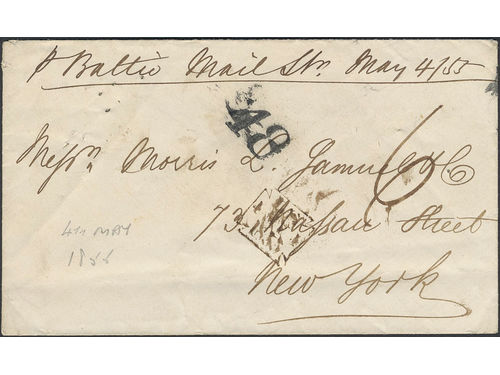 p Baltic Mail Str. May 4/55
48
Messrs Morris L. Samuel & Co
6
73 Nassau Street
4TH MAY
1855
New York